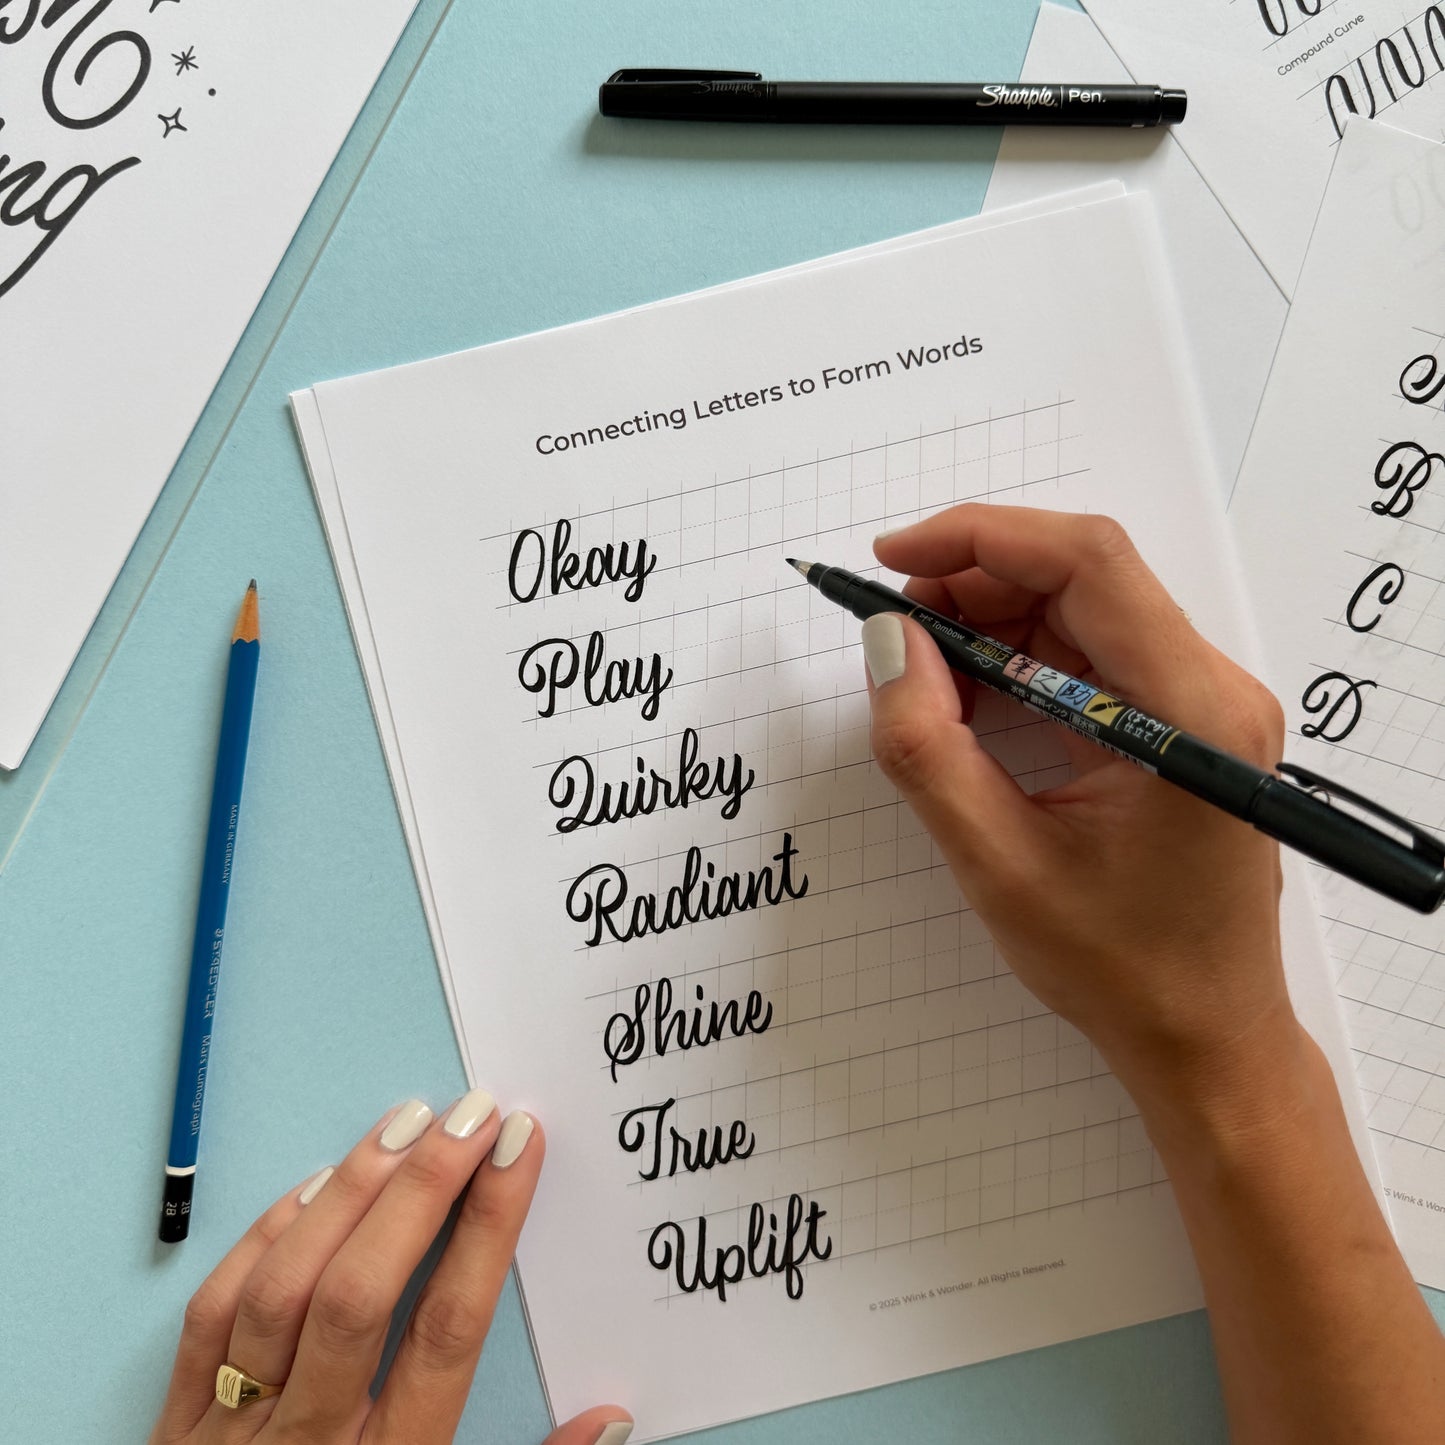 ng
Sharpie. | Pen.
Compound Curve
Connecting Letters to Form Words
Okay
Play
Quirky
Radiant
Shine
True
Uplift
© 2025 Wink & Wonder. All Rights Reserved.
B
C
D
Tombow
MADE IN GERMANY
STAEDTLER Mars Lumograph
2B 2B
M